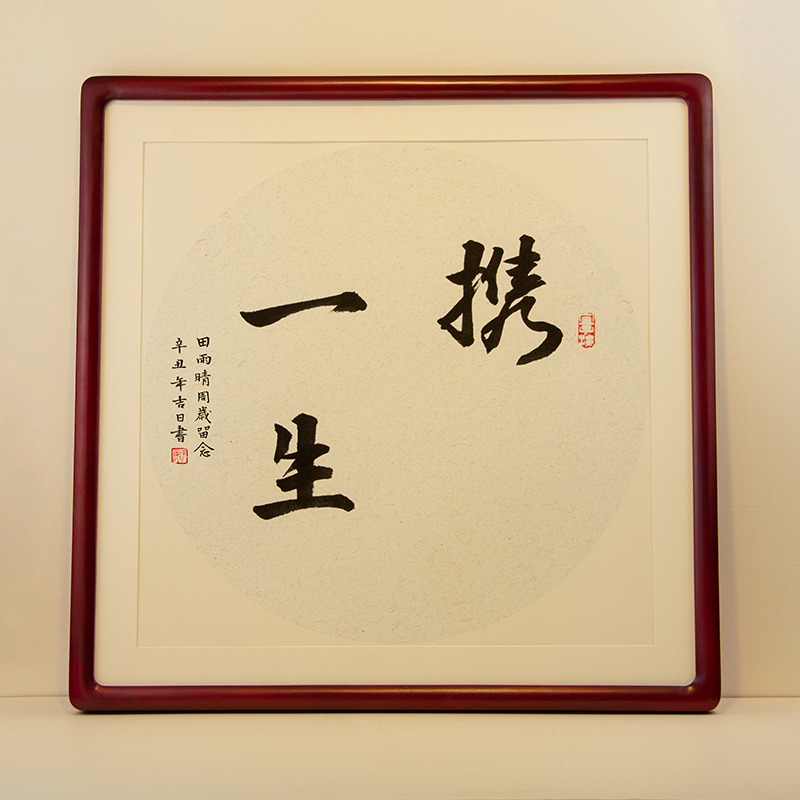 携
一生
田雨晴周歲留念
辛丑年吉日書